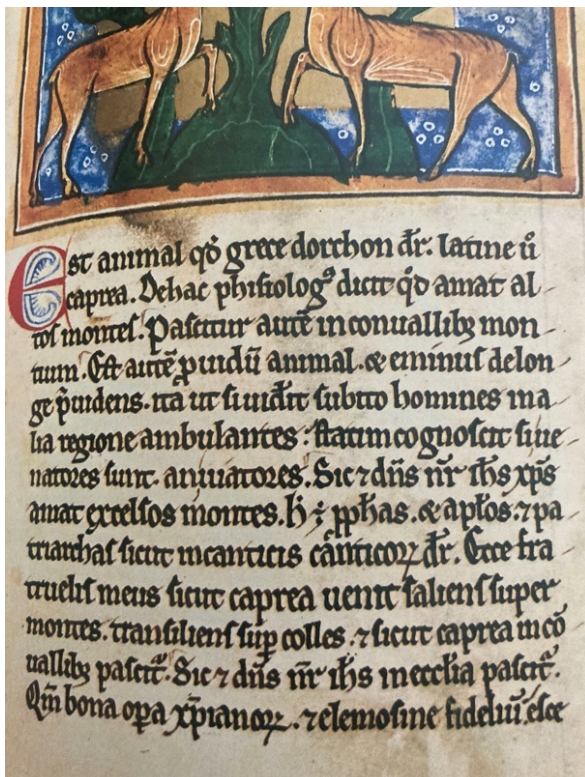 Est animal qđ grece dorchon dr̄. latine ū
caprea. De hac phisiologꝰ dicit qđ amat al-
tos montes. Pascitur autē in conuallibꝫ mon-
tium. Est autē prouidū animal. & eminus de lon-
ge p̄uidens. ita ut si uidēit subito homines in a-
lia regione ambulantes: statim cognoscit si ue-
natores sunt an uiatores. Sic ⁊ dn̄s nr̄ ih̄s xp̄s
amat excelsos montes. h̄ ÷ pp̄has. & ap̄los. ⁊ pa-
triarchas sicut in canticis cānticoꝝ dr̄. Ecce fra-
truelis meus sicut caprea uenit saliens super
montes. transiliens sup̄ colles. ⁊ sicut caprea in cō-
uallibꝫ pascitᷣ. Sic ⁊ dn̄s nr̄ ih̄s in eccl̄ia pascitᷣ.
Qm̄ bona oꝑa xp̄ianoꝝ. ⁊ elemosine fideliū. esce